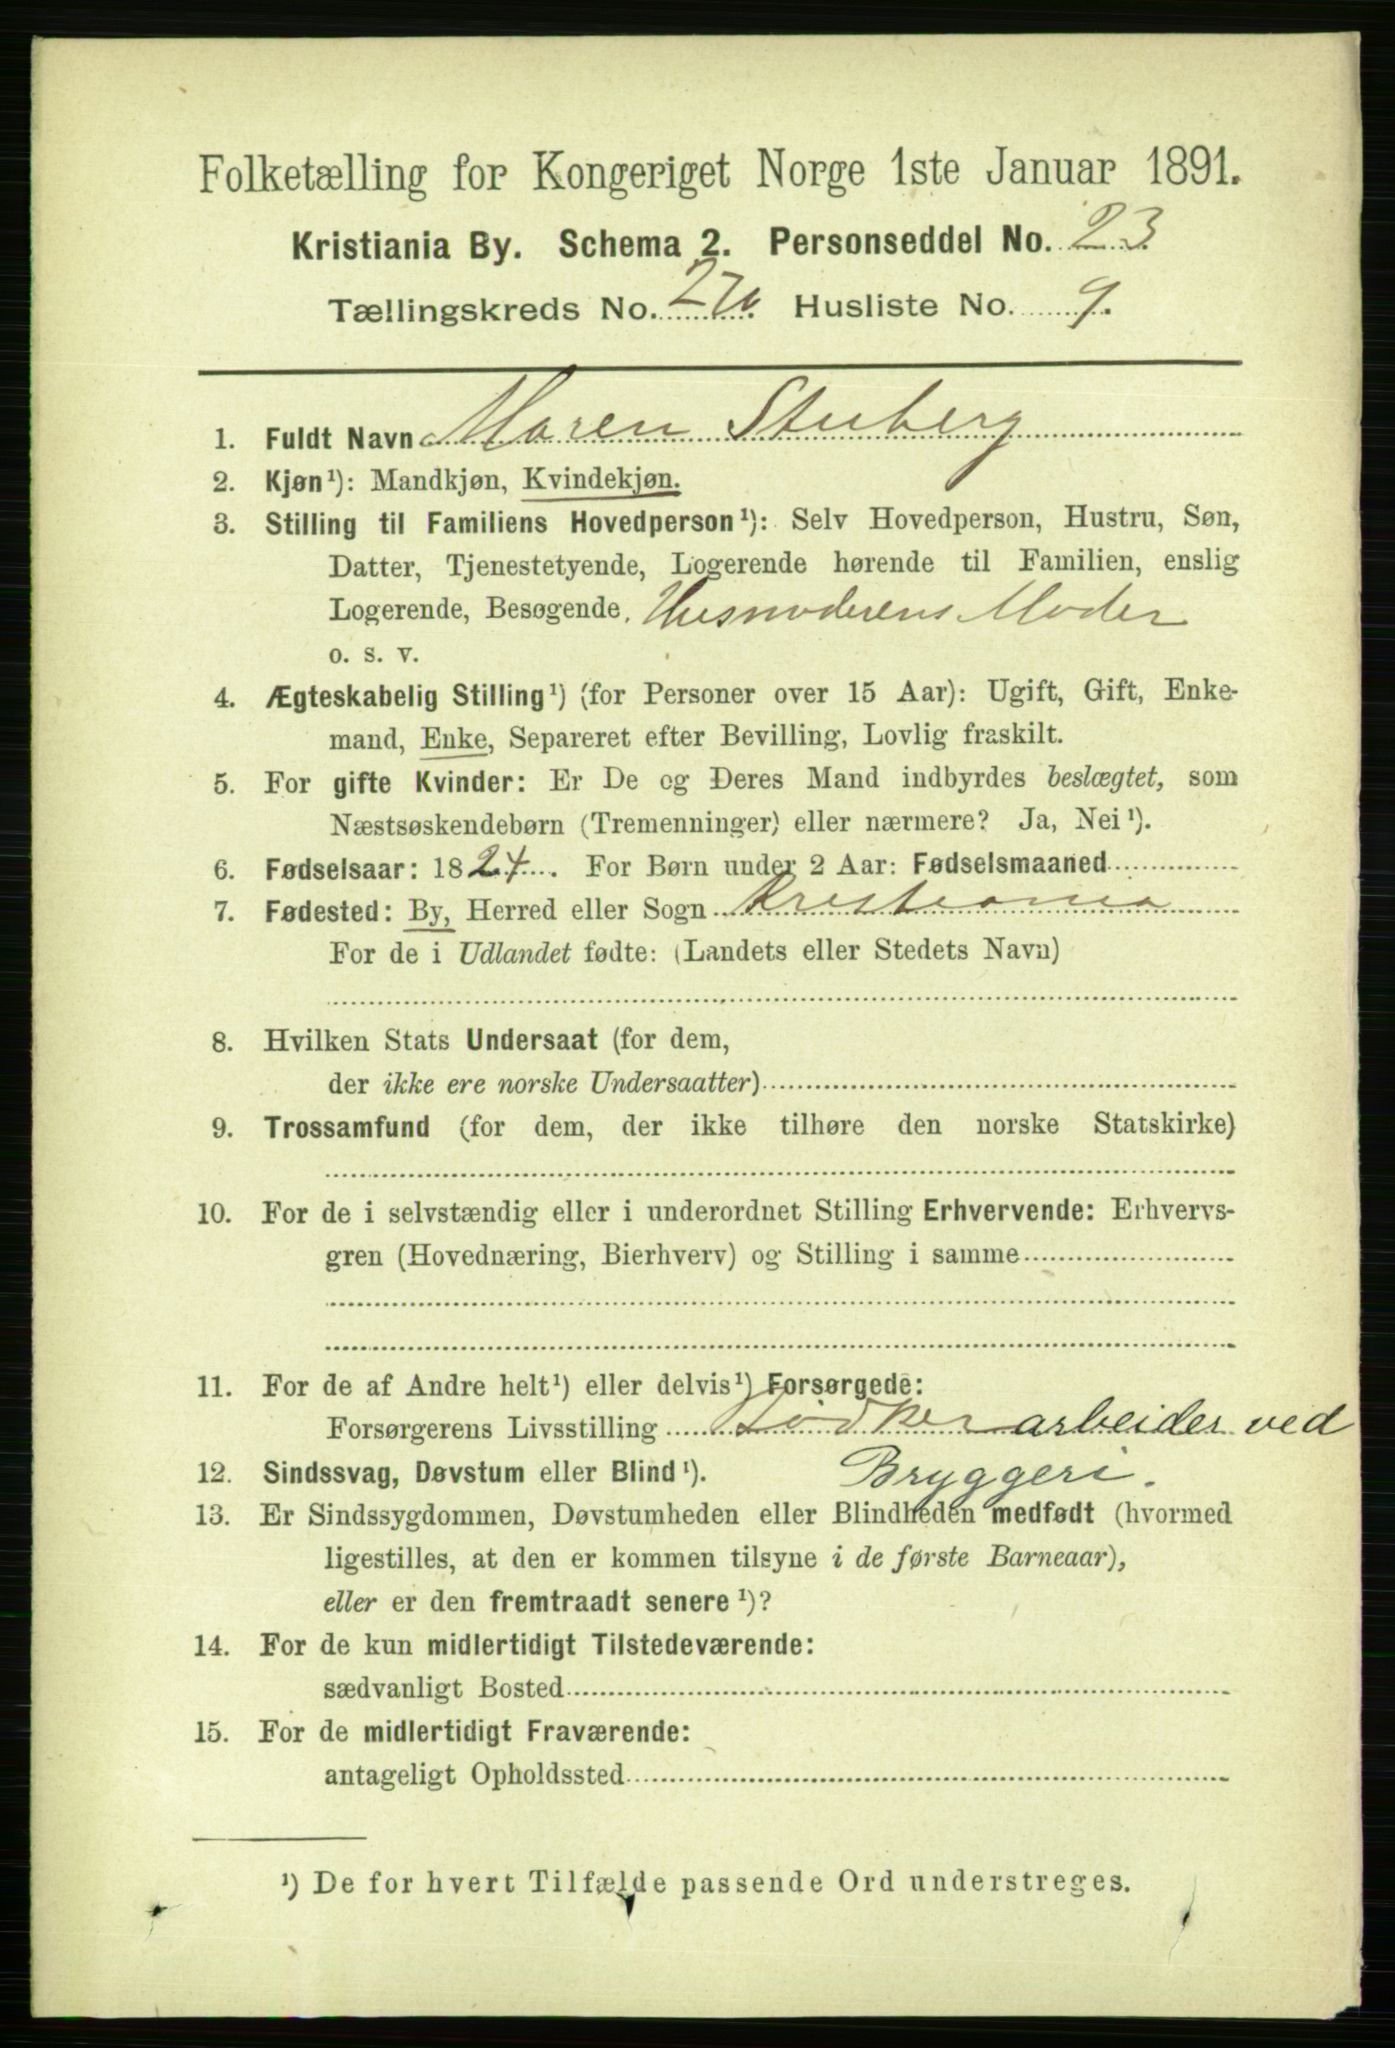 Folketælling for Kongeriget Norge 1ste Januar 1891.
Kristiania By. Schema 2. Personseddel No. 23
Tællingskreds No. 270. Husliste No. 9.
1. Fuldt Navn Maren Stuberg
2. Kjøn¹): Mandkjøn, Kvindekjøn.
3. Stilling til Familiens Hovedperson¹): Selv Hovedperson, Hustru, Søn,
Datter, Tjenestetyende, Logerende hørende til Familien, enslig
Logerende, Besøgende, Husmoderens Moder
o. s. v.
4. Ægteskabelig Stilling¹) (for Personer over 15 Aar): Ugift, Gift, Enke-
mand, Enke, Separeret efter Bevilling, Lovlig fraskilt.
5. For gifte Kvinder: Er De og Deres Mand indbyrdes beslægtet, som
Næstsøskendebørn (Tremenninger) eller nærmere? Ja, Nei¹).
6. Fødselsaar: 1824. For Børn under 2 Aar: Fødselsmaaned
7. Fødested: By, Herred eller Sogn Kristiania
For de i Udlandet fødte: (Landets eller Stedets Navn)
8. Hvilken Stats Undersaat (for dem,
der ikke ere norske Undersaatter)
9. Trossamfund (for dem, der ikke tilhøre den norske Statskirke)
10. For de i selvstændig eller i underordnet Stilling Erhvervende: Erhvervs-
gren (Hovednæring, Bierhverv) og Stilling i samme
11. For de af Andre helt¹) eller delvis¹) Forsørgede:
Forsørgerens Livsstilling Bødkerarbeider ved
12. Sindssvag, Døvstum eller Blind¹). Bryggeri.
13. Er Sindssygdommen, Døvstumheden eller Blindheden medfødt (hvormed
ligestilles, at den er kommen tilsyne i de første Barneaar),
eller er den fremtraadt senere¹)?
14. For de kun midlertidigt Tilstedeværende:
sædvanligt Bosted
15. For de midlertidigt Fraværende:
antageligt Opholdssted
¹) De for hvert Tilfælde passende Ord understreges.